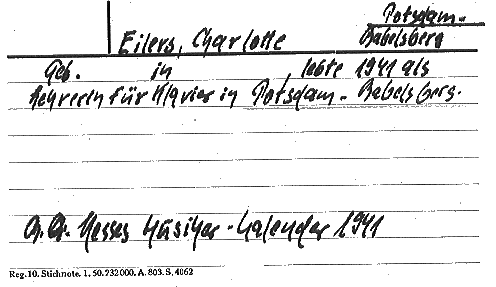 Potsdam-
Eilers, Charlotte Babelsberg
Geb. in , lebte 1941 als
Lehrerin für Klavier in Potsdam-Babelsberg.
Hesses Musiker-Kalender 1941
Reg. 10. Stichnote. 1. 50. 732000. A. 803. S. 4062